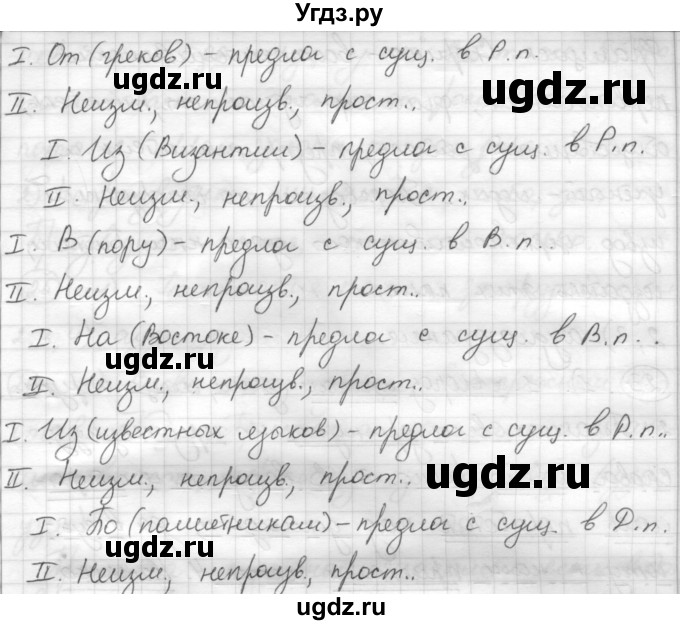 Угдз.ру
I. От (греков) – предлог с сущ. в Р.п.
II. Неизм., непроизв., прост..
I. Из (Византии) – предлог с сущ. в Р.п.
II. Неизм., непроизв., прост..
I. В (пору) – предлог с сущ. в В.п..
II. Неизм., непроизв., прост..
I. На (Востоке) – предлог с сущ. в В.п..
II. Неизм., непроизв., прост..
I. Из (известных языков) – предлог с сущ. в Р.п..
II. Неизм., непроизв., прост..
I. По (памятникам) – предлог с сущ. в Д.п.
II. Неизм., непроизв., прост..
ugdz.ru
ugdz.ru
ugdz.ru
ugdz.ru
ugdz.ru
ugdz.ru
ugdz.ru